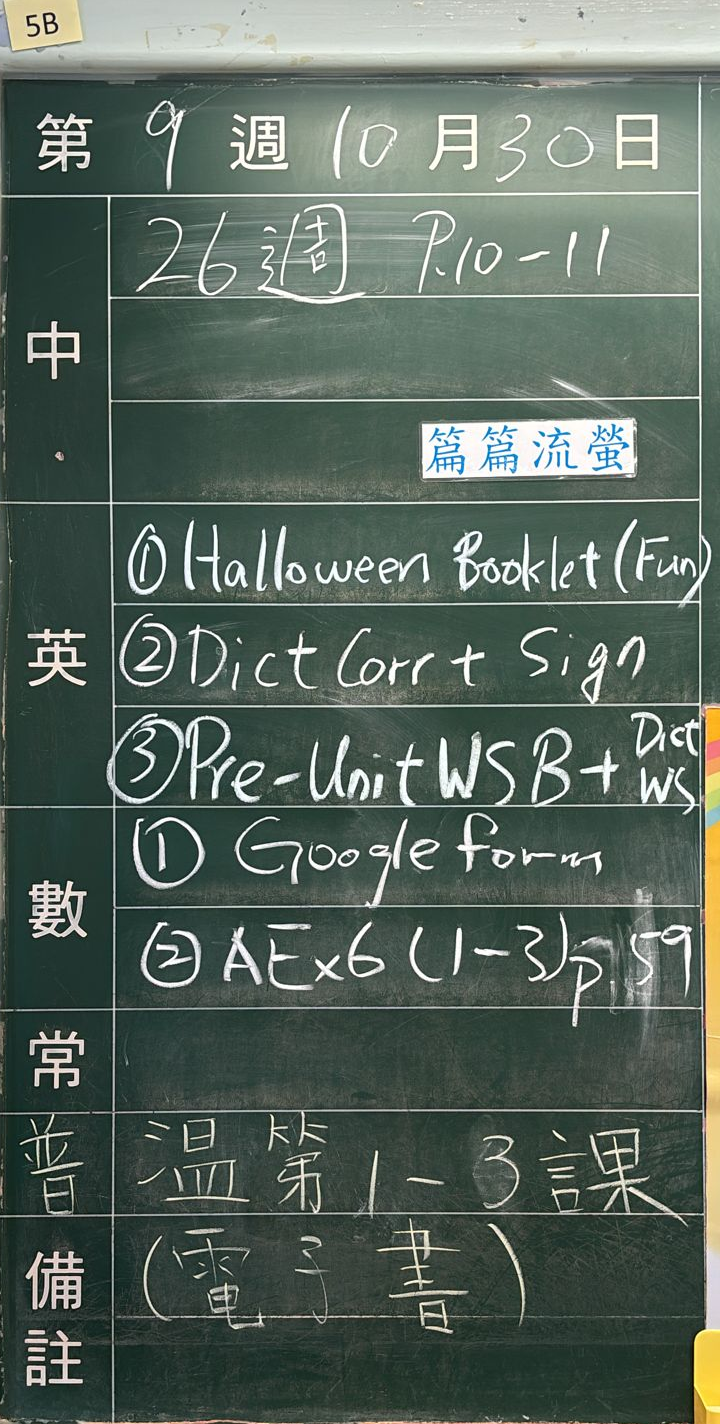 5B
第 9 週 10 月 30 日
中
26週 P.10-11
篇篇流螢
英
① Halloween Booklet (Fun)
② Dict Corr + Sign
③ Pre-Unit WS B + Dict WS
數
① Google form
② AEx6 (1-3) p.59
常
普
温第1-3課
備註
(電子書)